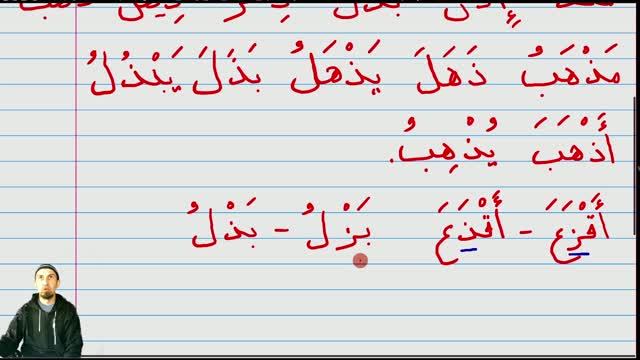 مَذْهَبُ ذَهَلَ يَذْهَلُ بَذَلَ يَبْذُلُ
أَذْهَبَ يُذْهِبُ.
أَقْزَعَ - أَقْذَعَ بَزْلُ - بَذْلُ